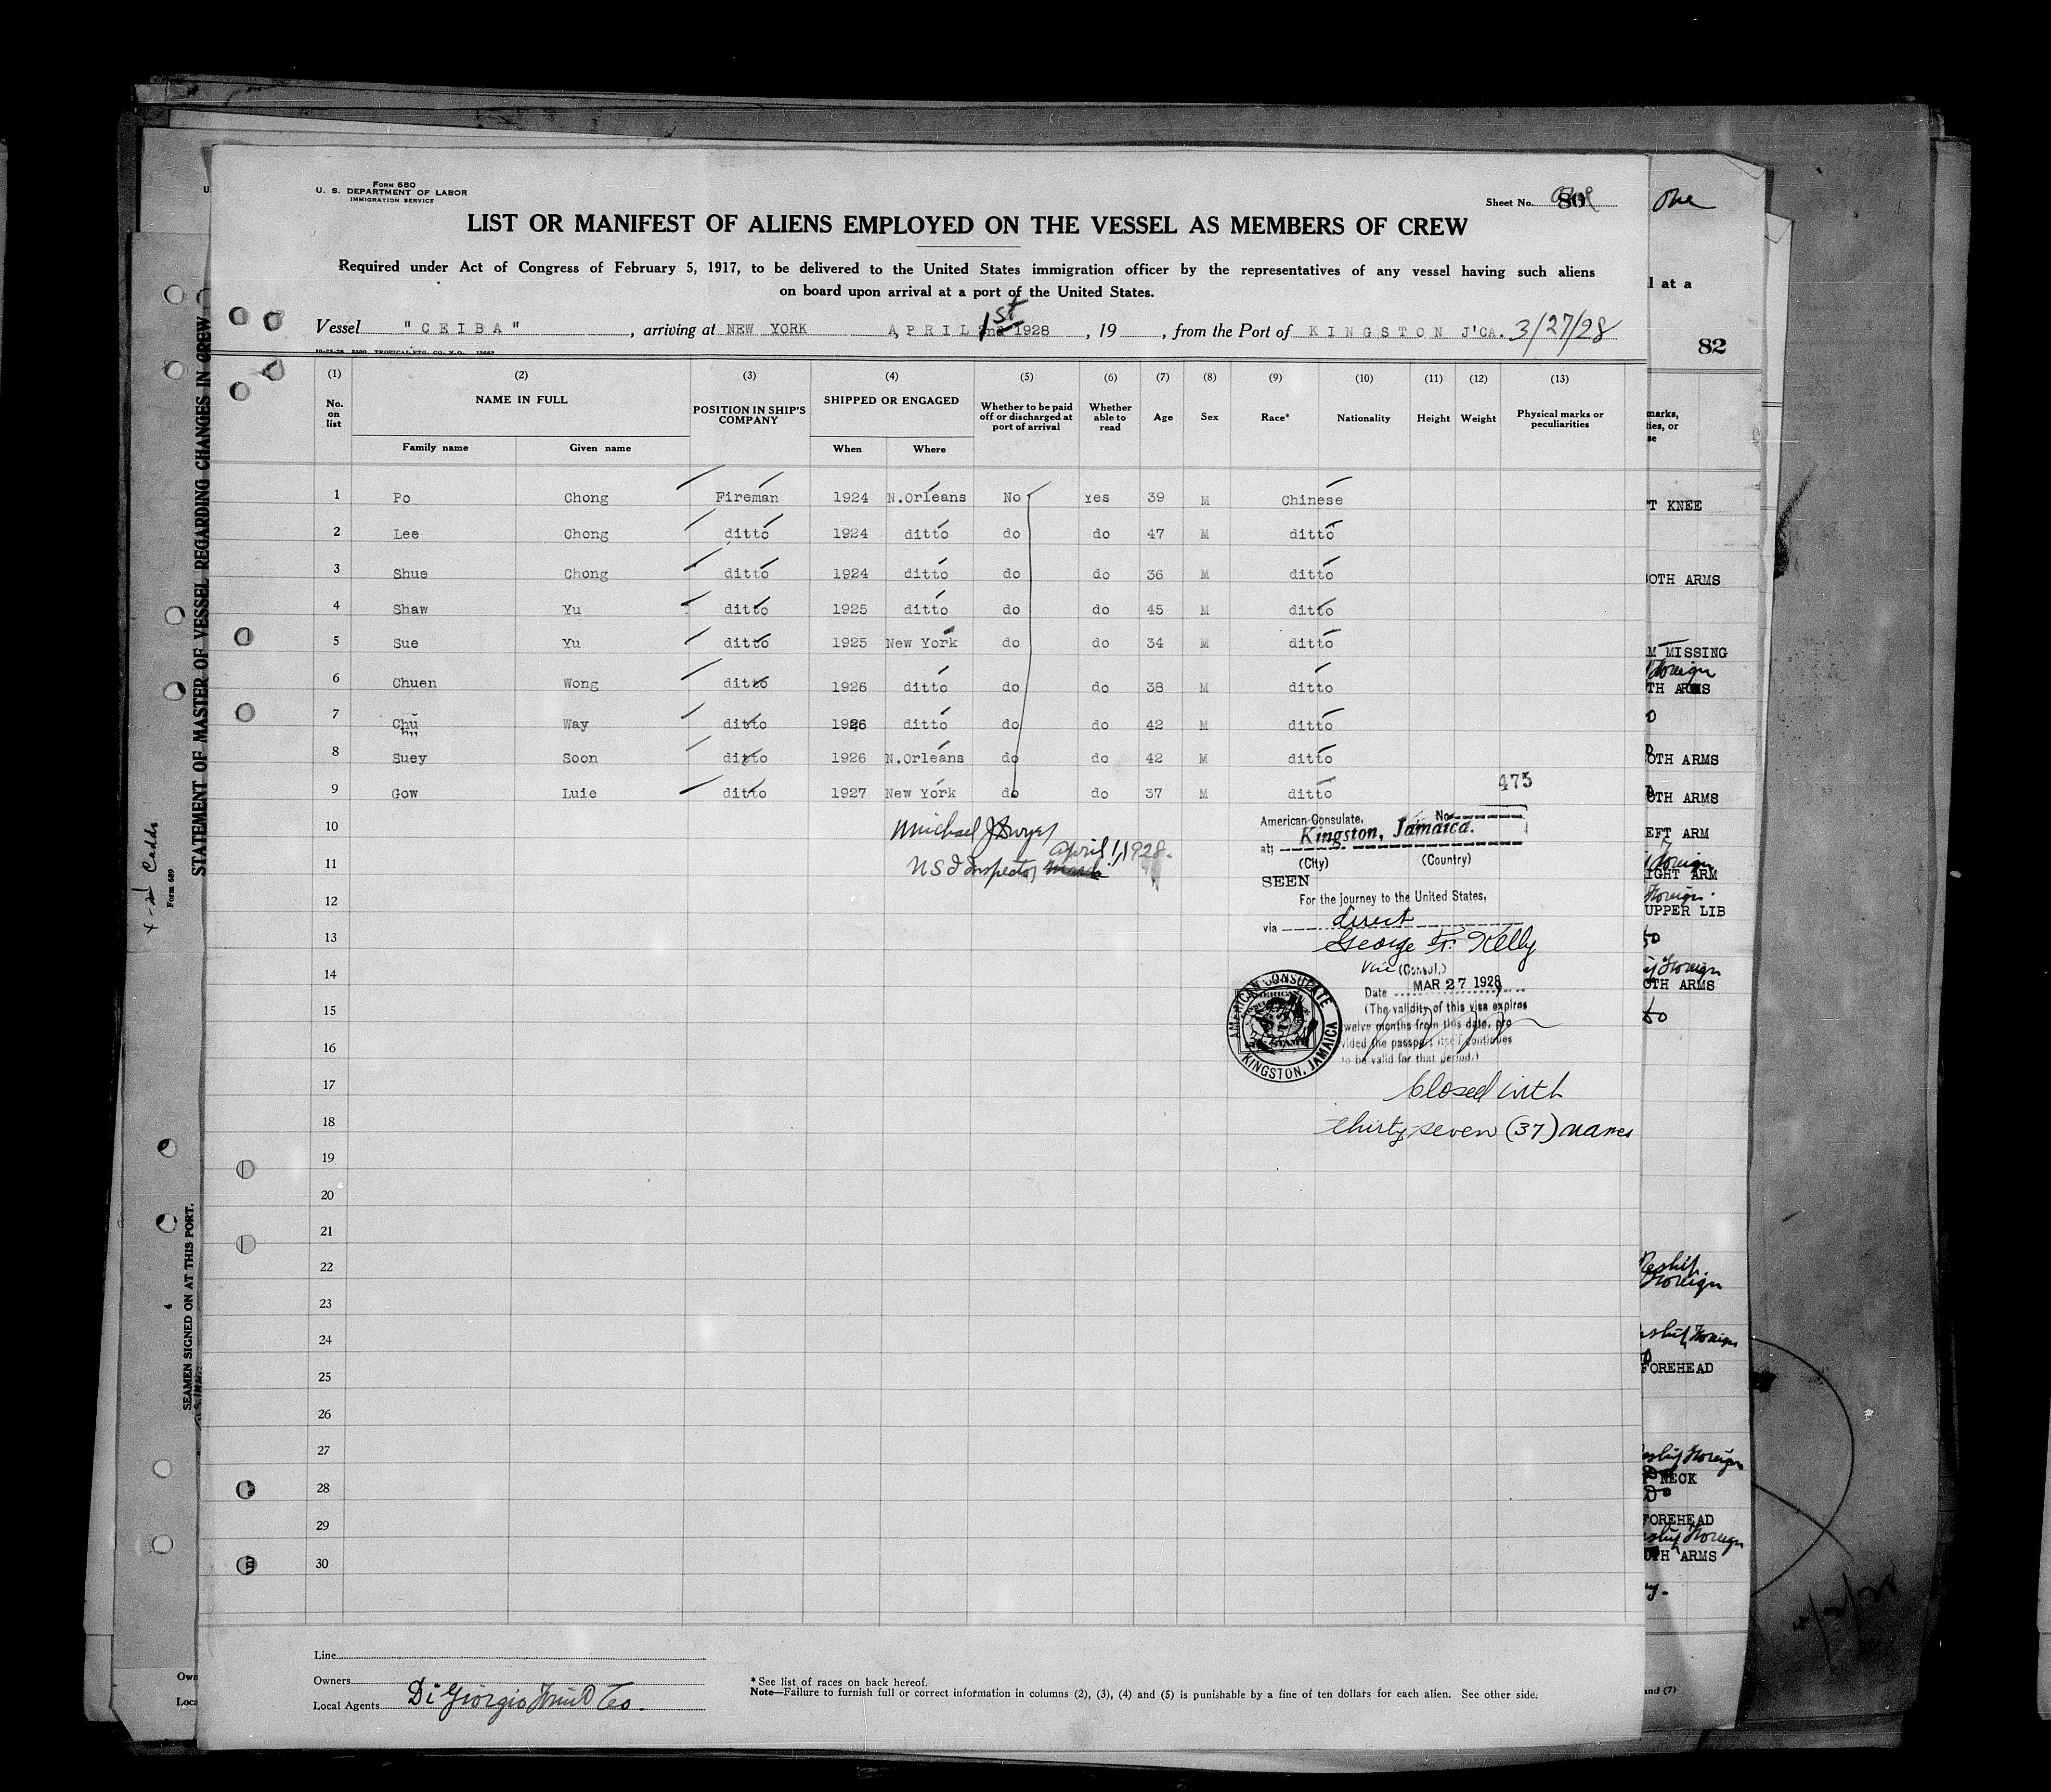 Form 680
U. S. DEPARTMENT OF LABOR
IMMIGRATION SERVICE
Sheet No. 80
One
LIST OR MANIFEST OF ALIENS EMPLOYED ON THE VESSEL AS MEMBERS OF CREW
Required under Act of Congress of February 5, 1917, to be delivered to the United States immigration officer by the representatives of any vessel having such aliens
on board upon arrival at a port of the United States.
l at a
Vessel "CEIBA", arriving at NEW YORK APRIL 1st 1928, 19, from the Port of KINGSTON J'CA. 3/27/28
82
(1) (2) (3) (4) (5) (6) (7) (8) (9) (10) (11) (12) (13)
No. on list NAME IN FULL POSITION IN SHIP'S COMPANY SHIPPED OR ENGAGED Whether to be paid off or discharged at port of arrival Whether able to read Age Sex Race* Nationality Height Weight Physical marks or peculiarities
Family name Given name When Where
1 Po Chong Fireman 1924 N.Orleans No Yes 39 M Chinese
2 Lee Chong ditto 1924 ditto do do 47 M ditto
3 Shue Chong ditto 1924 ditto do do 36 M ditto
4 Shaw Yu ditto 1925 ditto do do 45 M ditto
5 Sue Yu ditto 1925 New York do do 34 M ditto
6 Chuen Wong ditto 1926 ditto do do 38 M ditto
7 Chu Way ditto 1926 ditto do do 42 M ditto
8 Suey Soon ditto 1926 N.Orleans do do 42 M ditto
9 Gow Luie ditto 1927 New York do do 37 M ditto
10
11
12
13
14
15
16
17
18
19
20
21
22
23
24
25
26
27
28
29
30
Michael J Dwyer
April 1, 1928.
Inspector
475
American Consulate, No
at; Kingston, Jamaica.
(City) (Country)
SEEN
For the journey to the United States,
via direct
George F. Kelly
Vice (Consul.)
Date MAR 27 1928
(The validity of this visa expires
twelve months from this date, pro
vided the passport itself continues
to be valid for that period.)
AMERICAN CONSULATE
KINGSTON, JAMAICA
Closed with
thirty-seven (37) names
Line
Owners
Local Agents Di Giorgio Fruit Co.
* See list of races on back hereof.
Note—Failure to furnish full or correct information in columns (2), (3), (4) and (5) is punishable by a fine of ten dollars for each alien. See other side.
STATEMENT OF MASTER OF VESSEL REGARDING CHANGES IN CREW
Form 689
SEAMEN SIGNED ON AT THIS PORT.
marks,
ties, or
se
T KNEE
OTH ARMS
M MISSING
TH ARMS
OTH ARMS
OTH ARMS
EFT ARM
IGHT ARM
UPPER LIB
OTH ARMS
FOREHEAD
NECK
FOREHEAD
ARMS
and (7)